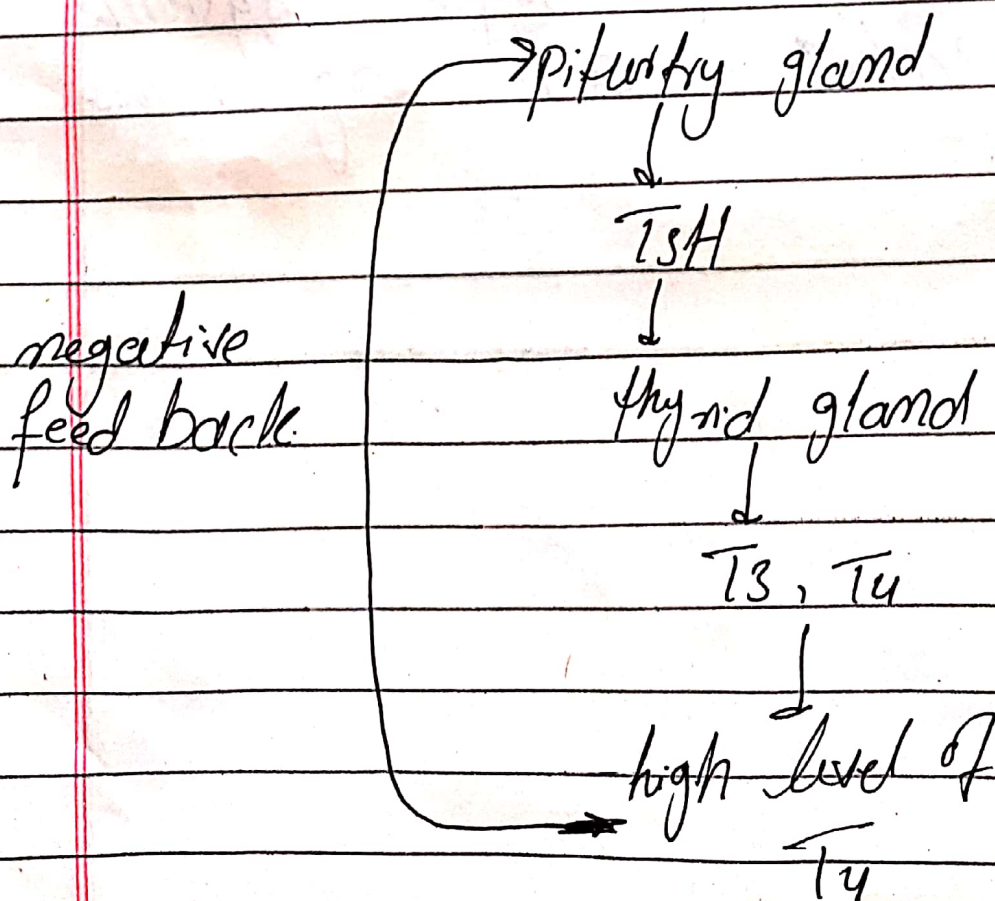 pituitry gland
TSH
negative
feed back
thyrid gland
T3, T4
high level of
T4